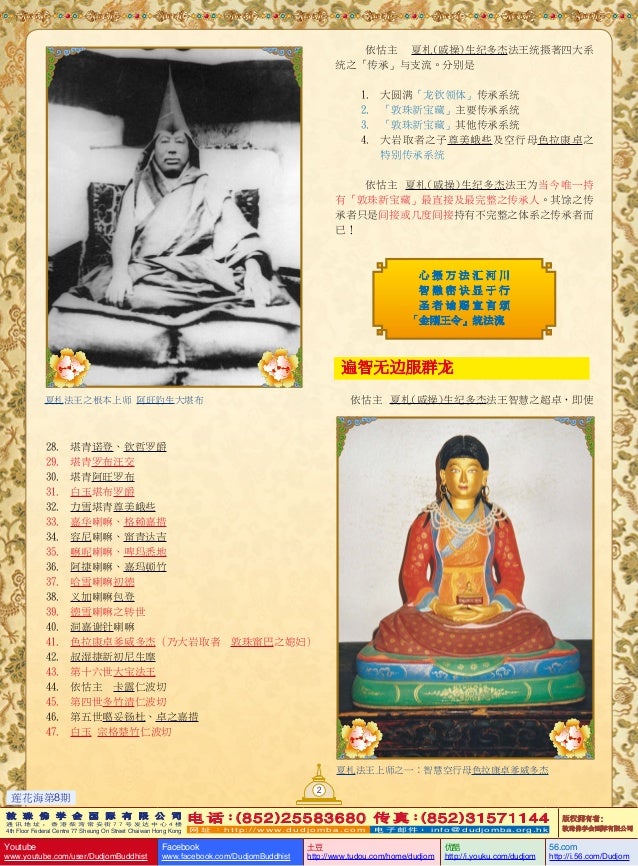 夏札法王之根本上师  阿旺趵生大堪布
28. 堪青诺登、钦哲罗爵
29. 堪青罗布汪交
30. 堪青阿旺罗布
31. 白玉堪布罗爵
32. 力雪堪青尊美峨些
33. 嘉华喇嘛、格赖嘉措
34. 容尼喇嘛、甯青达吉
36. 阿捷喇嘛、嘉玛顿竹
37. 哈雪喇嘛初德
38. 义加喇嘛包登
39. 德雪喇嘛之转世
40. 洞嘉谢针喇嘛
41. 色拉康卓爹威多杰（乃大岩取者  敦珠甯巴之媳妇）
42. 叔湿捷新初尼生摩
43. 第十六世大宝法王
44. 依怙主  卡露仁波切
45. 第四世多竹清仁波切
46. 第五世噶妥锡杜、卓之嘉措
47. 白玉 宗格楚竹仁波切
依怙主  夏札(戚操)生纪多杰法王统摄著四大系
统之「传承」与支流。分别是
1. 大圆满「龙钦领体」传承系统
2. 「敦珠新宝藏」主要传承系统
3. 「敦珠新宝藏」其他传承系统
4. 大岩取者之子尊美峨些及空行母色拉康卓之
特别传承系统
依怙主  夏札(戚操)生纪多杰法王为当今唯一持
有「敦珠新宝藏」最直接及最完整之传承人。其馀之传
承者只是间接或几度间接持有不完整之体系之传承者而
已！
心摄万法汇河川
智融密诀显于行
圣者谕赐宣言颂
「金刚王令」统法流
遍智无边服群龙
依怙主  夏札(戚操)生纪多杰法王智慧之超卓，即使
夏札法王上师之一：智慧空行母色拉康卓爹威多杰
2
莲花海第8期
敦珠佛学会国际有限公司
通讯地址：香港柴湾常安街77号发达中心4楼
4th Floor Federal Centre 77 Sheung On Street Chaiwan Hong Kong
电话:(852)25583680 传真:(852)31571144
网址：http://www.dudjomba.com 电子邮件：info@dudjomba.org.hk
版权拥有者:
敦珠佛学会国际有限公司
Youtube
www.youtube.com/user/DudjomBuddhist
Facebook
www.facebook.com/DudjomBuddhist
土豆
http://www.tudou.com/home/dudjom
优酷
http://i.youku.com/dudjom
56.com
http://i.56.com/Dudjom